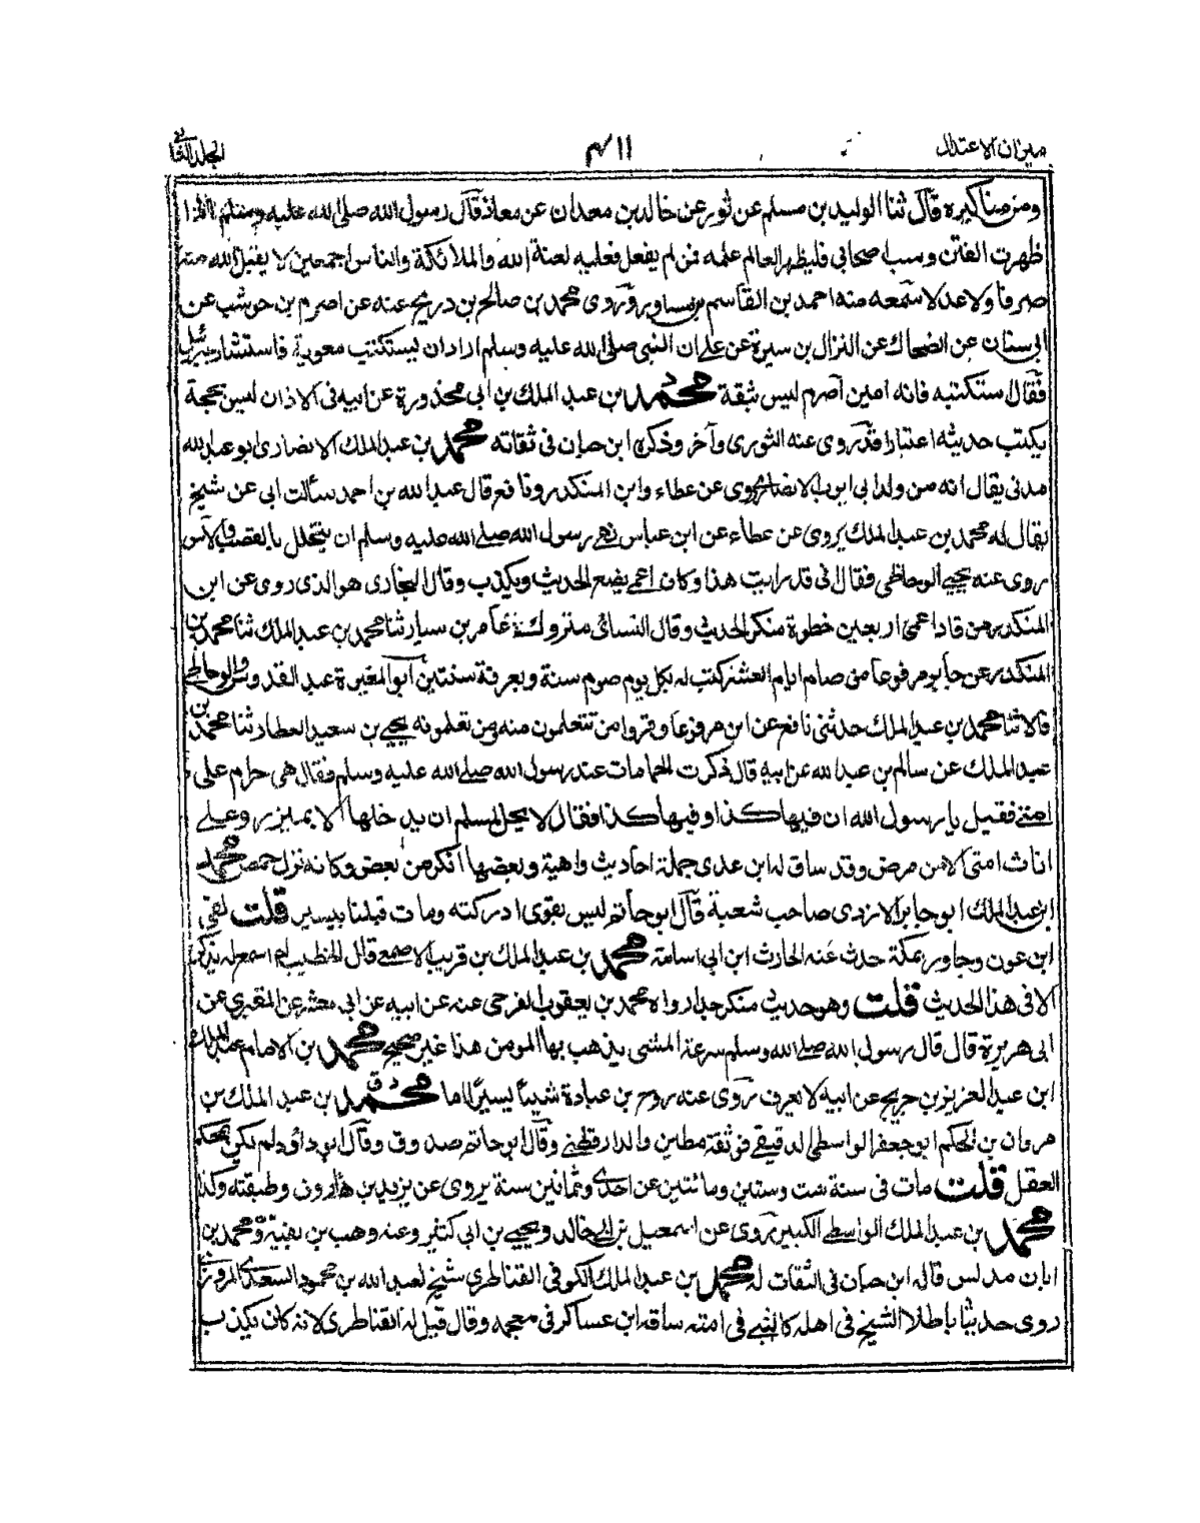 ميزان الاعتدال
٤١١
المجلد الثاني
ومن مناكيره قال ثنا الوليد بن مسلم عن ثور عن خالد بن معدان عن معاذ قال رسول الله صلى الله عليه وسلم اذا
ظهرت الفتن وسب صحابي فليظهر العالم علمه فمن لم يفعل فعليه لعنة الله والملائكة والناس اجمعين لا يقبل الله منه
صرفا ولا عدلا سمعه منه احمد بن القاسم بن مساور وروى محمد بن صالح بن دريج عنه عن اصرم بن حوشب عن
ابي سنان عن الضحاك عن النزال بن سبرة عن علي ان النبي صلى الله عليه وسلم اراد ان يستكتب معوية فاستشار جبرئيل
فقال ستكتبه فانه امين اصرم ليس بثقة محمد بن عبد الملك بن ابي محذورة عن ابيه في الاذان ليس بحجة
يكتب حديثه اعتبارا قد روى عنه الثوري وآخر وذكره ابن حبان في ثقاته محمد بن عبد الملك الانصاري ابو عبد الله
مدني يقال انه من ولد ابي ايوب الانصاري روى عن عطاء وابن المنكدر ونافع قال عبد الله بن احمد سألت ابي عن شيخ
يقال له محمد بن عبد الملك يروى عن عطاء عن ابن عباس نهى رسول الله صلى الله عليه وسلم ان يتخلل بالقصب والآس
روى عنه يحيى الوحاظي فقال لي قد رايت هذا وكان اعمى يضع الحديث ويكذب وقال البخاري هو الذي روى عن ابن
المنكدر من قاد اعمى اربعين خطوة منكر الحديث وقال النسائي متروك عامر بن سيار ثنا محمد بن عبد الملك ثنا محمد بن
المنكدر عن جابر مرفوعا من صام ايام العشر كتب له بكل يوم صوم سنة وبعرفة سنتين ابو المغيرة عبد القدوس والوحاظي
قالا ثنا محمد بن عبد الملك حدثني نافع عن ابن مرفوعا وقروا من تتعلمون منه ومن تعلمونه يحيى بن سعيد العطار ثنا محمد بن
عبد الملك عن سالم بن عبد الله عن ابيه قال ذكرت الحمامات عند رسول الله صلى الله عليه وسلم فقال هي حرام على
امتي فقيل يا رسول الله ان فيها كذا وفيها كذا فقال لا يحل لمسلم ان يدخلها الا بميزر وعلى
اناث امتي الا من مرض وقد ساق له ابن عدي جملة احاديث واهية وبعضها انكر من بعض وكانه نزل حمص محمد
ابن عبد الملك ابو جابر الازدي صاحب شعبة قال ابو حاتم ليس بقوي ادركته ومات قبلنا بيسير قلت لقي
ابن عون وجاور بمكة حدث عنه الحارث ابن ابي اسامة محمد بن عبد الملك بن قريب الاصمعي قال الخطيب لم اسمع له بذكر
الا في هذا الحديث قلت وهو حديث منكر جدا رواه محمد بن يعقوب الفرجي عنه عن ابيه عن ابي معشر عن المقبري عن
ابي هريرة قال قال رسول الله صلى الله وسلم سرعة المشي يذهب بهاء المومن هذا غير صحيح محمد بن الامام عبد الملك
ابن عبد العزيز بن جريج عن ابيه لا يعرف روى عنه روح بن عبادة شيئا يسيرا اما محمد بن عبد الملك بن
مروان بن الحكم ابو جعفر الواسطي الدقيقي فوثقه مطين والدارقطني وقال ابو حاتم صدوق وقال ابو داؤد لم يكن بمحكم
العقل قلت مات في سنة ست وستين ومائتين عن احدى وثمانين سنة يروى عن يزيد بن هارون وطبقته وكذا
محمد بن عبد الملك الواسطي الكبير روى عن اسمعيل بن ابي خالد ويحيى بن ابي كثير وعنه وهب بن بقية ومحمد بن
ابان مدلس قاله ابن حبان في الثقات له محمد بن عبد الملك الكوفي القناطري شيخ لعبد الله بن محمود السعدي المروزي
روى حديثا باطلا الشيخ في اهله كالنبي في امته ساقه ابن عساكر في معجمه وقال قيل له القناطري لانه كان يكذب